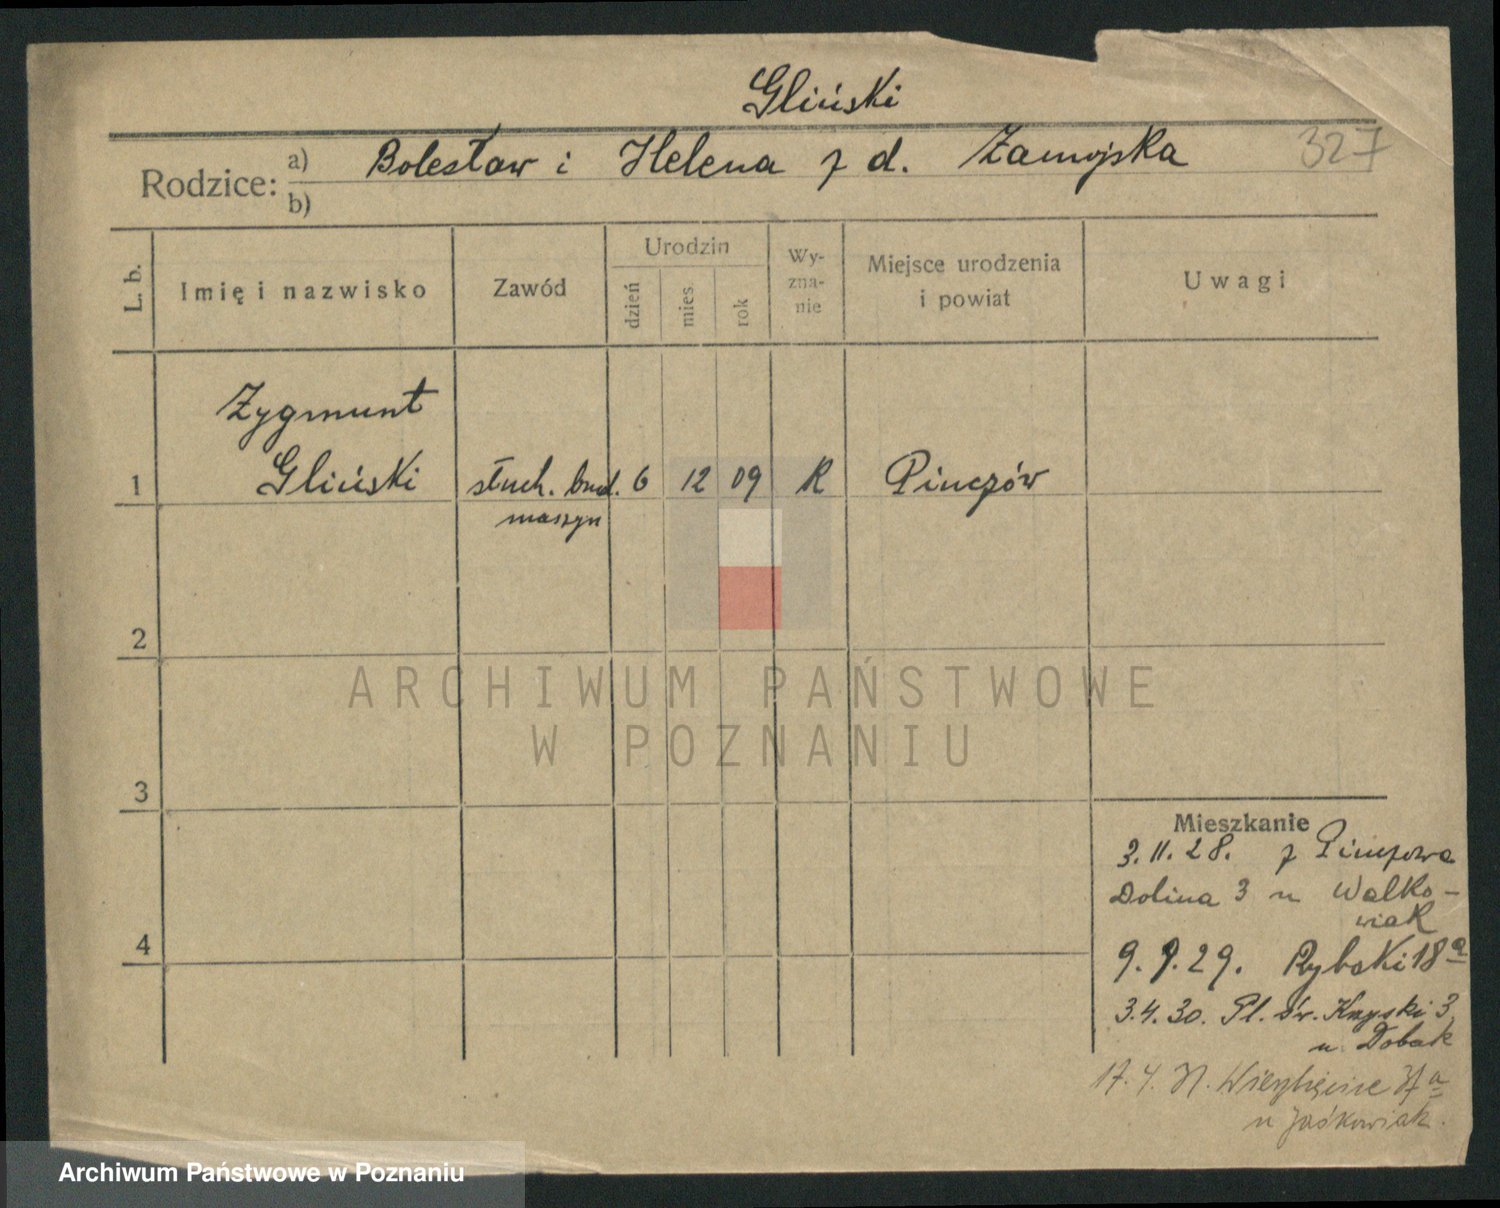 Gliński
327
Rodzice: a) Bolesław i Helena z d. Zamojska
b)
L. b.
Imię i nazwisko
Zawód
Urodzin
dzień
mies
rok
Wy-
zna-
nie
Miejsce urodzenia
i powiat
Uwagi
Zygmunt
1 Gliński słuch. bud. 6 12 09 R Pinczów
maszyn
2
ARCHIWUM PAŃSTWOWE
W POZNANIU
3
Mieszkanie
3.11.28. z Pinczowa
Dolina 3 u Walko-
wiak
4
9. 9. 29. Rybaki 18a
3.4.30. Pl. Św. Krzyski 3
u Dobak
17. 4. Wierzbięcice
u Jaśkowiak.
Archiwum Państwowe w Poznaniu